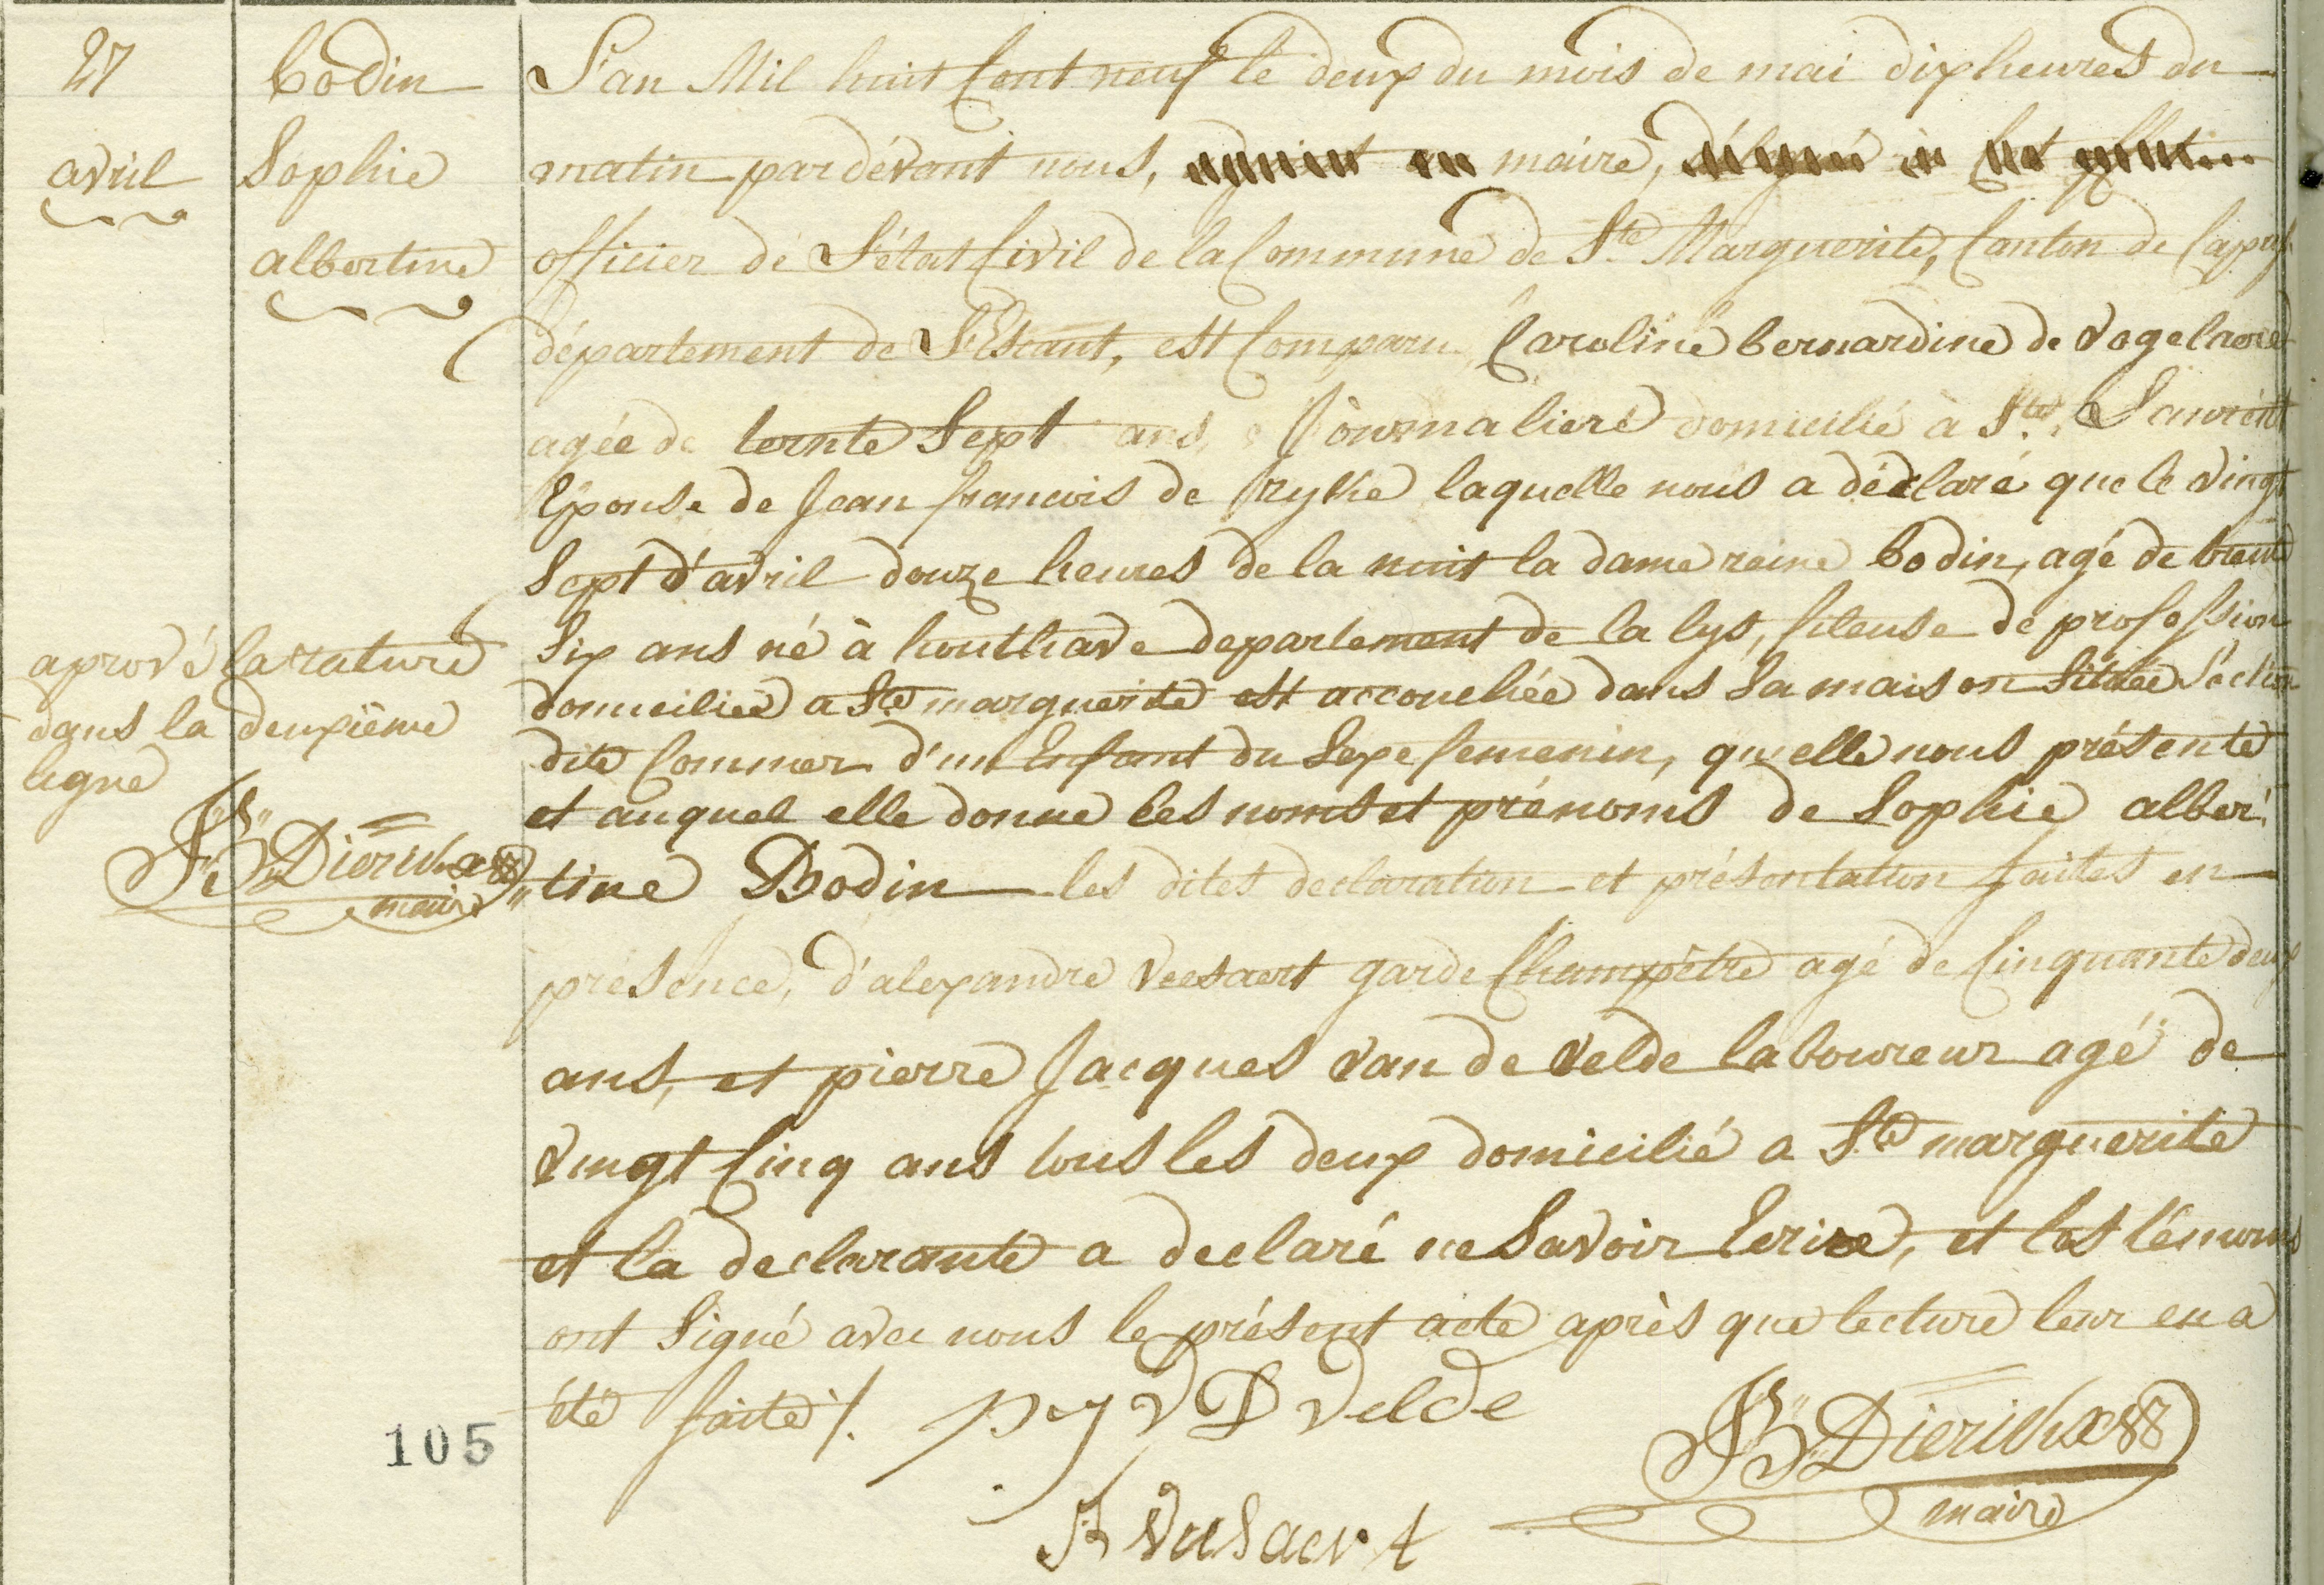 27
avril
bodin
Sophie
albertine
L'an Mil huit Cent neuf le deux du mois de mai dix heures du
matin pardévant nous, maire,
officier de L'état Civil de la Commune de Ste Marguerite, Canton de Capryk
département de L'Escaut, est Comparu Caroline bernardine de Vogelaere
agée de ternte Sept ans Journaliere domicilié à St. Laurent
Epouse de Jean francois de Rycke laquelle nous a déclaré que le vingt
Sept d'avril douze heures de la nuit la dame reine bodin, agé de trente
Six ans né à houthave departement de la lys, fileuse de profession
domiciliée a Ste marguerite est accouchée dans Sa maison Située Séction
dite Commer d'un Enfant du Sexe femenin, qu'elle nous présente
et auquel elle donne les noms et prénoms de Sophie alber
tine Bodin les dites declaration et présentation faites en
présence, d'alexandre Veesaert garde Champêtre agé de Cinquante deux
ans, et pierre Jacques van de Velde laboureur agé de
Vingt Cinq ans tous les deux domicilié a Ste marguerite
et la declarante a declaré ne Savoir Ecrire, et les témoins
ont Signé avec nous le présent acte après que lecture leur en a
été faite /.
aprové la rature
dans la deuxième
ligne
JB Dierickx
maire
p j v D velde
JB Dierickx
maire
105